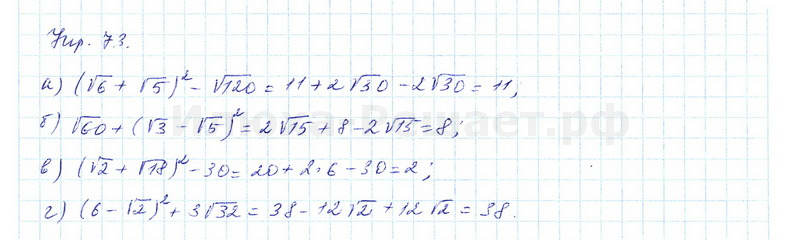 Упр. 73.
а) (√6 + √5)² - √120 = 11 + 2√30 - 2√30 = 11;
б) √60 + (√3 - √5)² = 2√15 + 8 - 2√15 = 8;
в) (√2 + √18)² - 30 = 20 + 2·6 - 30 = 2;
г) (6 - √2)² + 3√32 = 38 - 12√2 + 12√2 = 38.